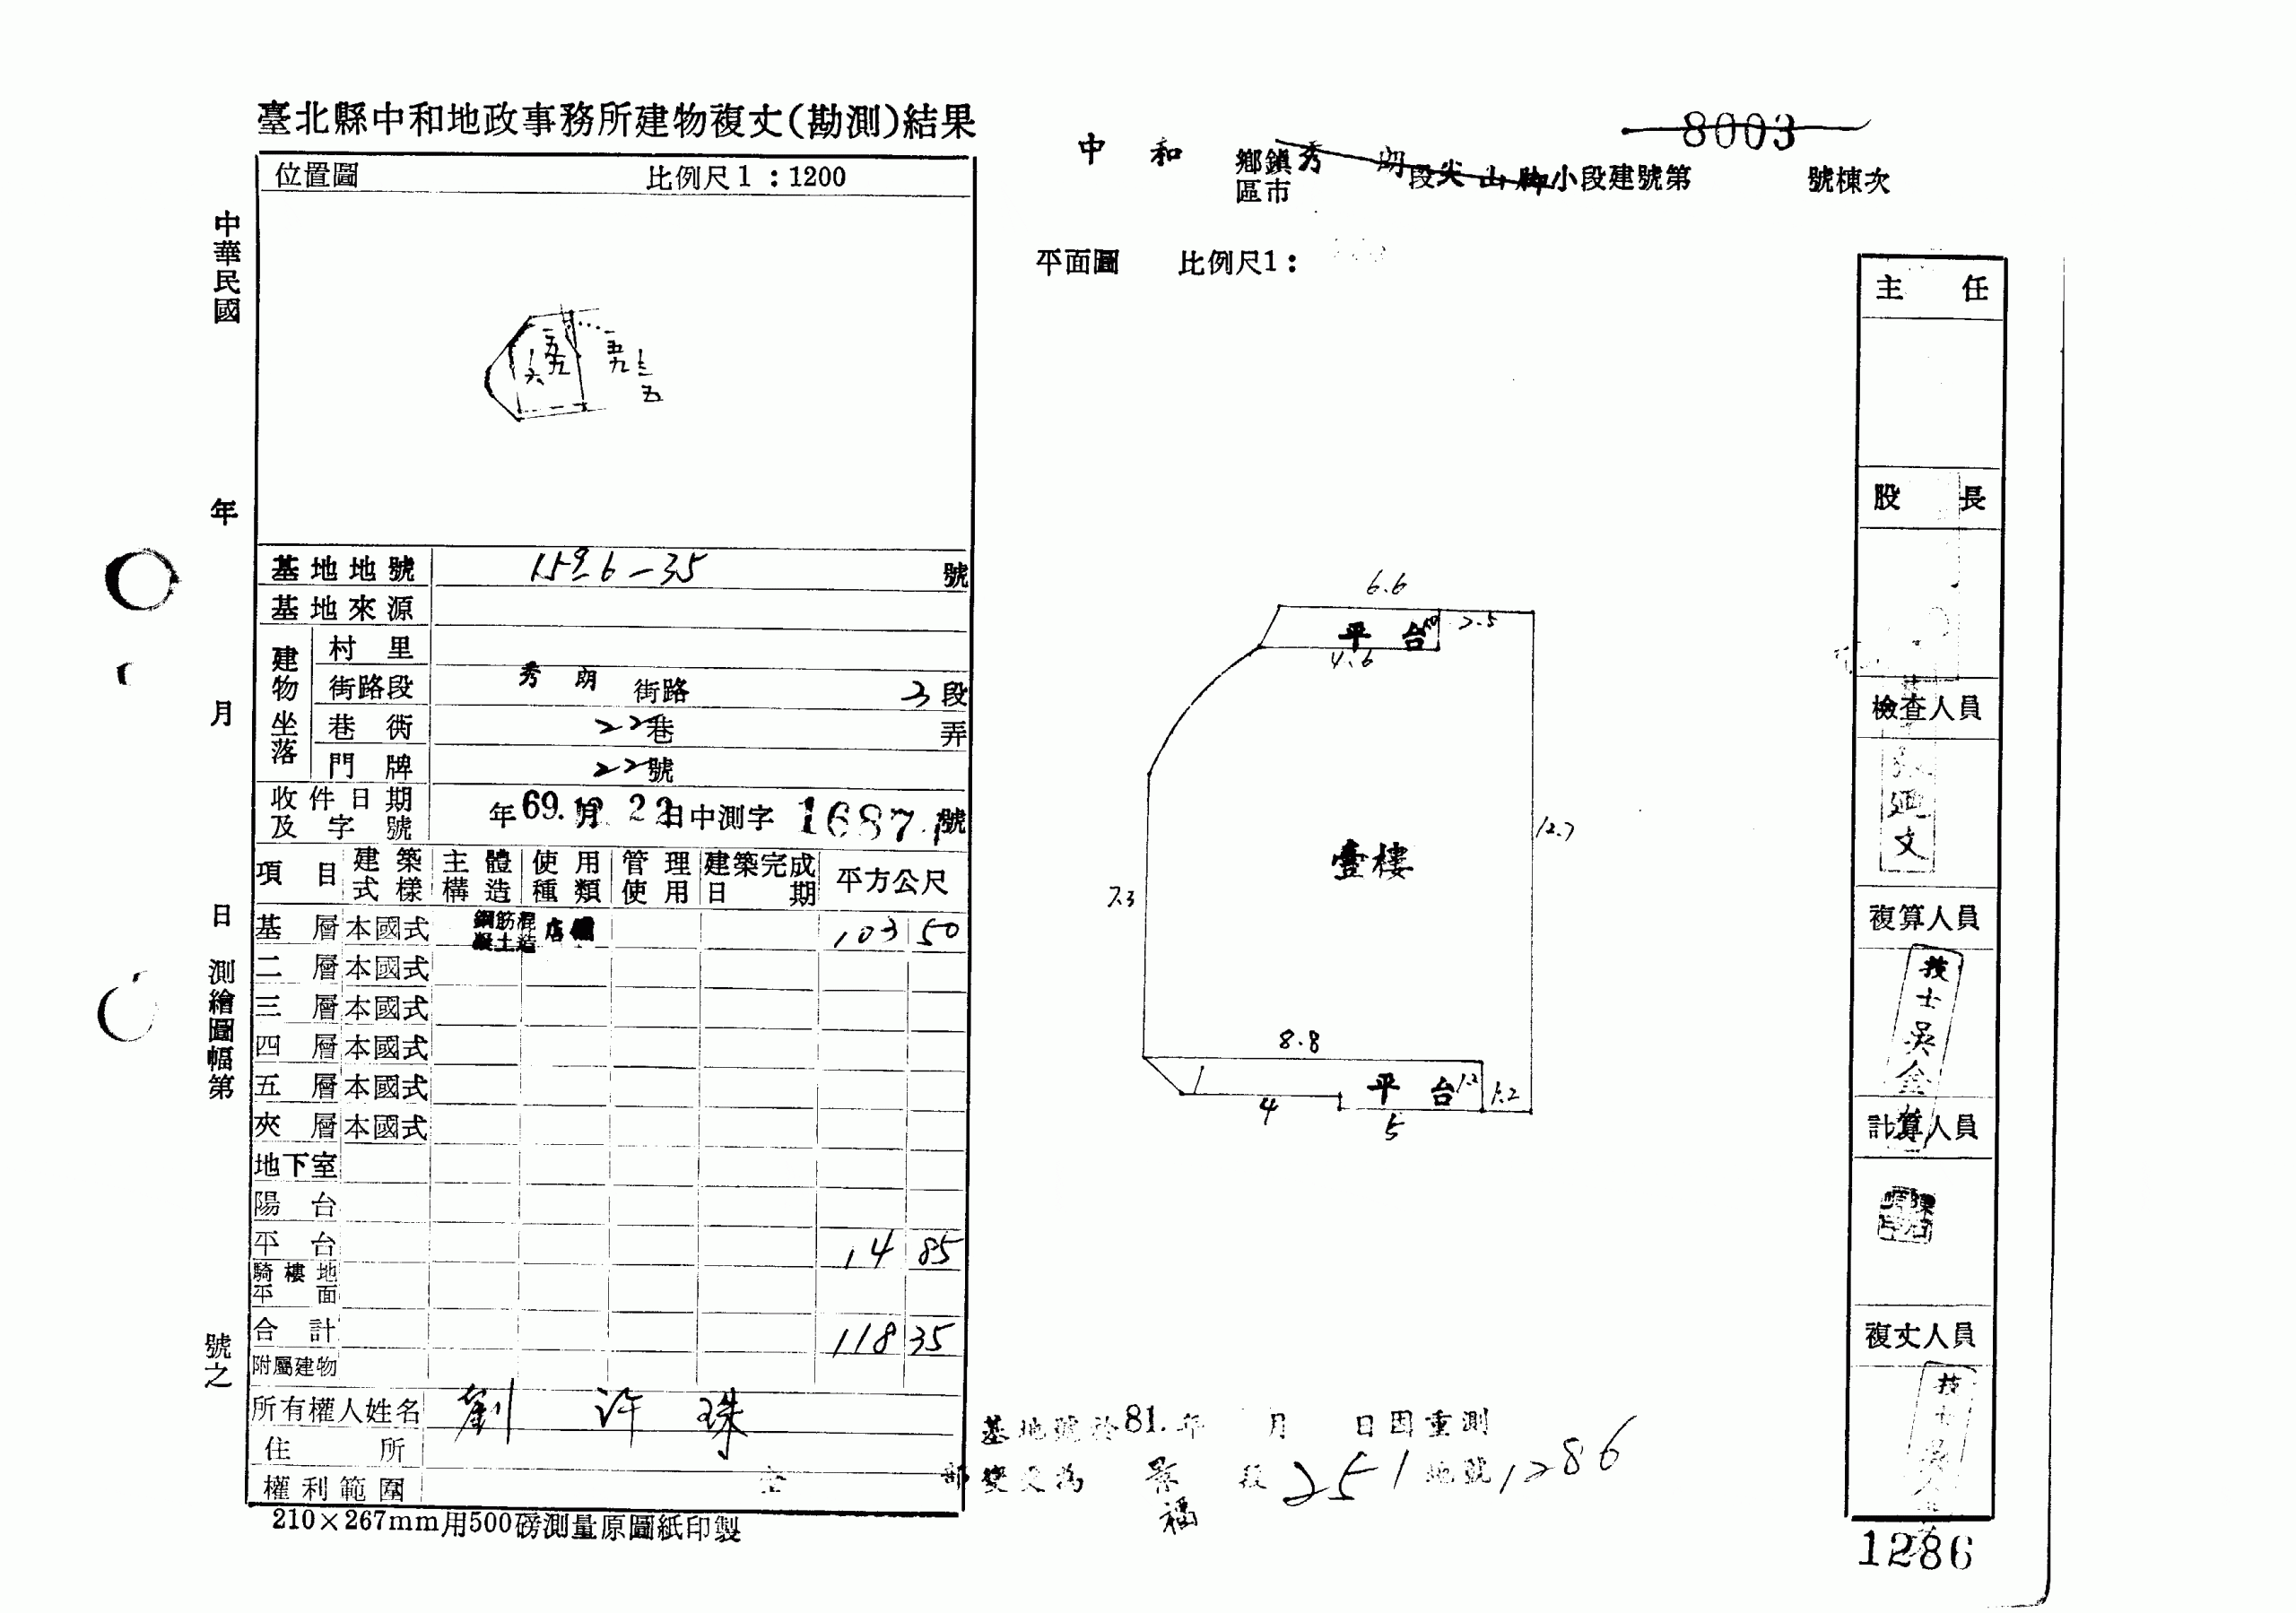 臺北縣中和地政事務所建物複丈(勘測)結果
位置圖 比例尺1:1200
五九六
五九
三五
中華民國 年 月 日 測繪圖幅第 號之
基地地號 1596-35 號
基地來源
建物坐落
村里
街路段 秀朗 街路 3段
巷衖 22巷 弄
門牌 22號
收件日期及字號 年69.12月22日中測字1687號
項目 建築式樣 主體構造 使用種類 管理使用 建築完成日期 平方公尺
基層 本國式 鋼筋混凝土造 店舖 103 50
二層 本國式
三層 本國式
四層 本國式
五層 本國式
夾層 本國式
地下室
陽台
平台 14 85
騎樓地平面
合計 118 35
附屬建物
所有權人姓名 劉許珠
住所
權利範圍 全部
210×267mm用500磅測量原圖紙印製
8003
中和 鄉鎮區市 秀朗段尖山腳小段建號第 號棟次
平面圖 比例尺1:
6.6
平台
2.5
4.6
12.7
壹樓
7.3
8.8
平台 1.2 1.2
4
5
基地號於81.年 月 日因重測
變更為 景福 段251地號1286
主任
股長
檢查人員
複算人員
技士吳金
計算人員
複丈人員
1286